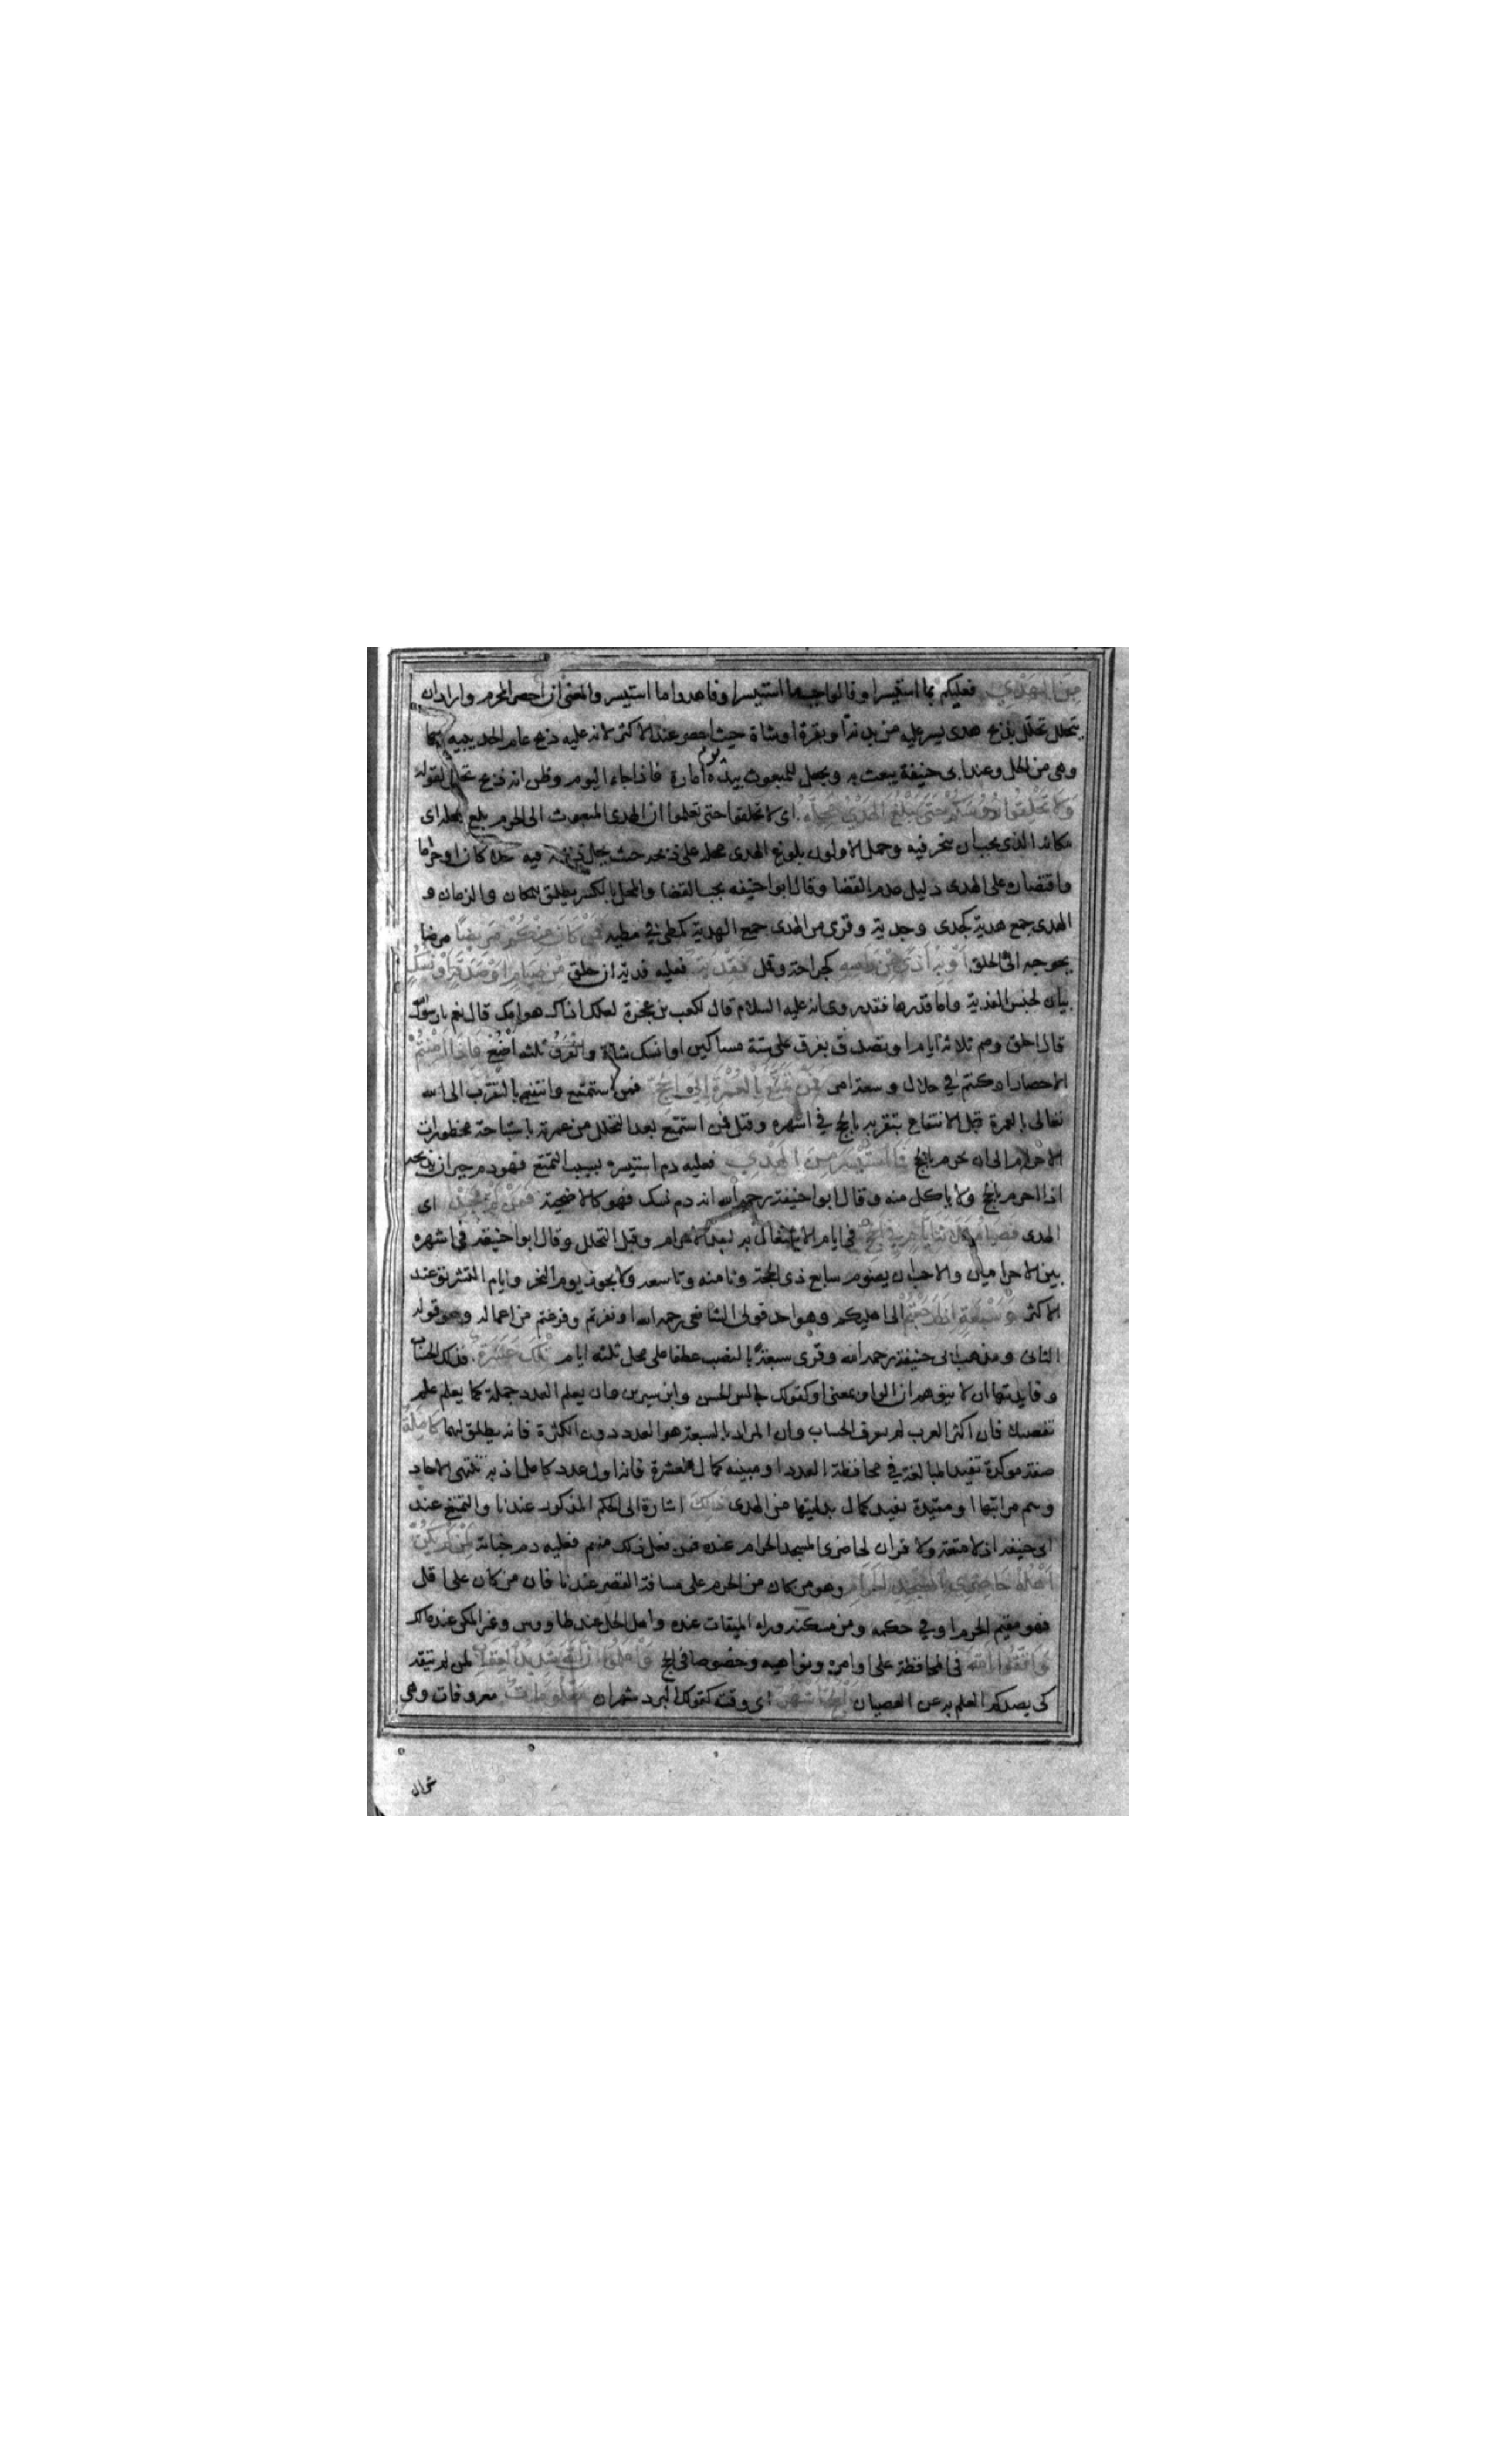 مِنَ الْهَدْيِ فعليكم بما استيسر او فالواجب ما استيسر او فاهدوا ما استيسر والمعنى ان احصر المحرم واراد ان
يتحلل تحلل بذبح هدى يسر عليه من بدنة او بقرة او شاة حيث احصر عند الاكثر لانه عليه ذبح عام الحديبيه بها
وهى من الحل وعند ابى حنيفة يبعث به ويجعل للمبعوث بيده يوم امارة فاذا جاء اليوم وظن انه ذبح تحلل لقوله
وَلَا تَحْلِقُوا رُءُوسَكُمْ حَتَّى يَبْلُغَ الْهَدْيُ مَحِلَّهُ اى لا تحلقوا حتى تعلموا ان الهدى المبعوث الى الحرم بلغ محله اى
مكانه الذى يجب ان ينحر فيه وحمل الاولون بلوغ الهدى محله على ذبحه حيث يحل فيه حلا كان او حراما
واقتصاره على الهدى دليل عدم القضا وقال ابو حنيفه يجب القضا والمحل بالكسر يطلق للمكان والزمان و
الهدى جمع هدية كجدى وجدية وقرى من الهدى جمع الهدية كمطى فى مطيه فَمَنْ كَانَ مِنْكُمْ مَرِيضًا مرضا
يحوجه الى الحلق أَوْ بِهِ أَذًى مِنْ رَأْسِهِ كجراحة وقمل فَفِدْيَةٌ فعليه فدية ان حلق مِنْ صِيَامٍ أَوْ صَدَقَةٍ أَوْ نُسُكٍ
بيان لجنس الفدية واما قدرها فقد روى انه عليه السلام قال لكعب بن عجرة لعلك اذاك هوامك قال نعم يا رسول الله
قال احلق وصم ثلاثة ايام او تصدق بفرق على ستة مساكين او انسك شاة والفرق ثلثه اصع فَإِذَا أَمِنْتُمْ
الاحصار او كنتم فى حلال وسعة امن فَمَنْ تَمَتَّعَ بِالْعُمْرَةِ إِلَى الْحَجِّ فمن استمتع وانتفع بالتقرب الى الله
تعالى بالعمرة قبل الانتفاع بتقربه بالحج فى اشهره وقيل فمن استمتع بعد التحلل من عمرته باستباحة محظورات
الاحرام الى ان يحرم بالحج فَمَا اسْتَيْسَرَ مِنَ الْهَدْيِ فعليه دم استيسره بسبب التمتع فهو دم جبران يذبحه
اذا احرم بالحج ولا ياكل منه وقال ابو حنيفة رحمه الله انه دم نسك فهو كالاضحية فَمَنْ لَمْ يَجِدْ اى
الهدى فَصِيَامُ ثَلَاثَةِ أَيَّامٍ فِي الْحَجِّ فى ايام الاشتغال به بعد الاحرام وقبل التحلل وقال ابو حنيفه فى اشهره
بين الاحرامين والاحب ان يصوم سابع ذى الحجة وثامنه وتاسعه ولا يجوز يوم النحر وايام التشريق عند
الاكثر وَسَبْعَةٍ إِذَا رَجَعْتُمْ الى اهليكم وهو احد قولى الشافعى رحمه الله او نفرتم وفرغتم من اعماله وهو قوله
الثانى ومذهب ابى حنيفة رحمه الله وقرى سبعة بالنصب عطفا على محل ثلثه ايام تِلْكَ عَشَرَةٌ فذلك الحساب
وفايدتها ان لا يتوهم ان الواو بمعنى او كقولك جالس الحسن وابن سيرين وان يعلم العدد جملة كما يعلم علم
تفصيلا فان اكثر العرب لم يعرف الحساب وان المراد بالسبعة هو العدد دون الكثرة فانه يطلق لهما كَامِلَةٌ
صفة موكدة تفيد المبالغة فى محافظة العدد او مبينه كمال العشرة فانه اول عدد كامل اذ به تنتهى الاحاد
ويتم مراتبها او مقيدة تفيد كمال بدليتها من الهدى ذَلِكَ اشارة الى الحكم المذكور عندنا والتمتع عند
ابى حنيفه اذ لا متعة ولا قران لحاضرى المسجد الحرام عنده فمن فعل ذلك منهم فعليه دم جناية لِمَنْ لَمْ يَكُنْ
أَهْلُهُ حَاضِرِي الْمَسْجِدِ الْحَرَامِ وهو من كان من الحرم على مسافة القصر عندنا فان من كان على اقل
فهو مقيم الحرم او فى حكمه ومن مسكنه وراء الميقات عنده واهل الحل عند طاووس وغير المكى عند مالك
وَاتَّقُوا اللَّهَ فى المحافظة على اوامره ونواهيه وخصوصا فى الحج وَاعْلَمُوا أَنَّ اللَّهَ شَدِيدُ الْعِقَابِ لمن لم يتقه
كى يصدكم العلم به عن العصيان الْحَجُّ أَشْهُرٌ اى وقته كقولك البرد شهران مَعْلُومَاتٌ معروفات وهى
شوال